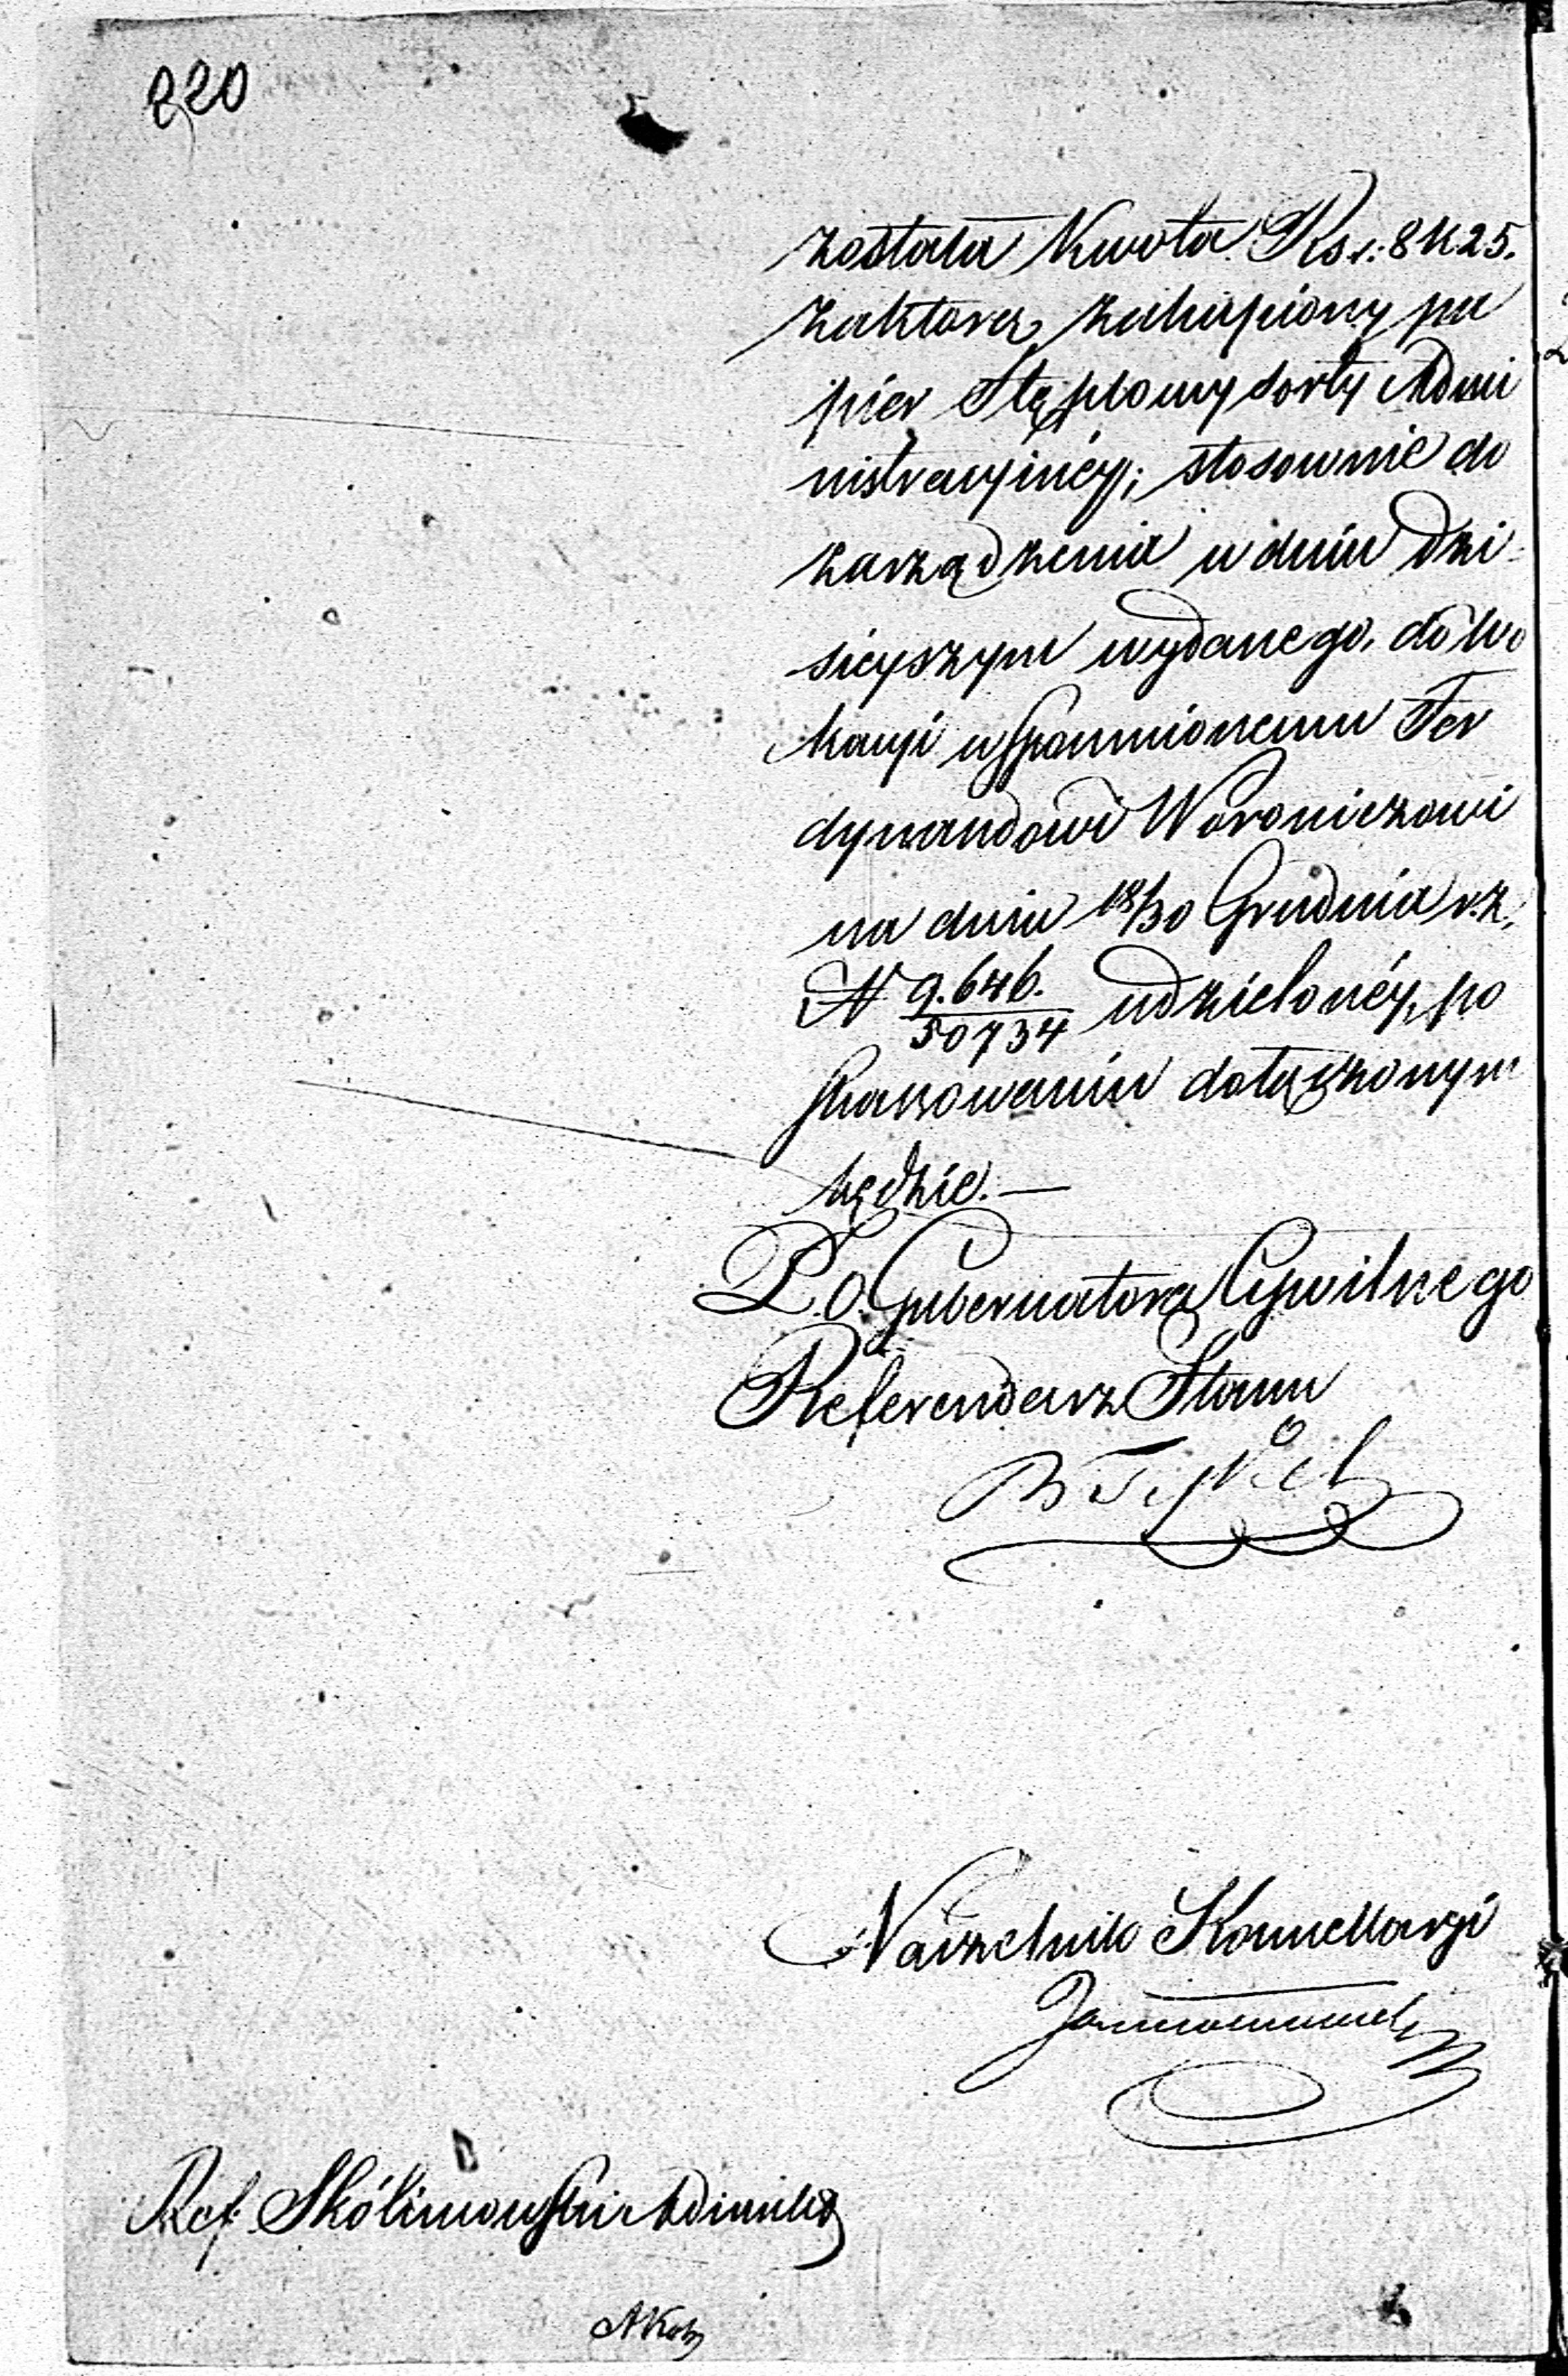 220
została kwota Rs. r: 8 k 25.
za którą zakupiony pa
piér Stęplowy sorty Admi
nistracyjnéj; stosownie do
zarządzenia w dniu dzi-
siejszym wydanego, do lo
kacyi wspomnionemu Fer
dynandowi Woroniczowi
na dniu 18/30 Grudnia r.z.
N 9.646./50734 udzielonéj, po
skassowaniu dołączonym
będzie.—
P.O. Gubernatora Cywilnego
Referendarz Stanu
Naczelnik Kancellaryi
Ref. Skólimowski Adiunkt